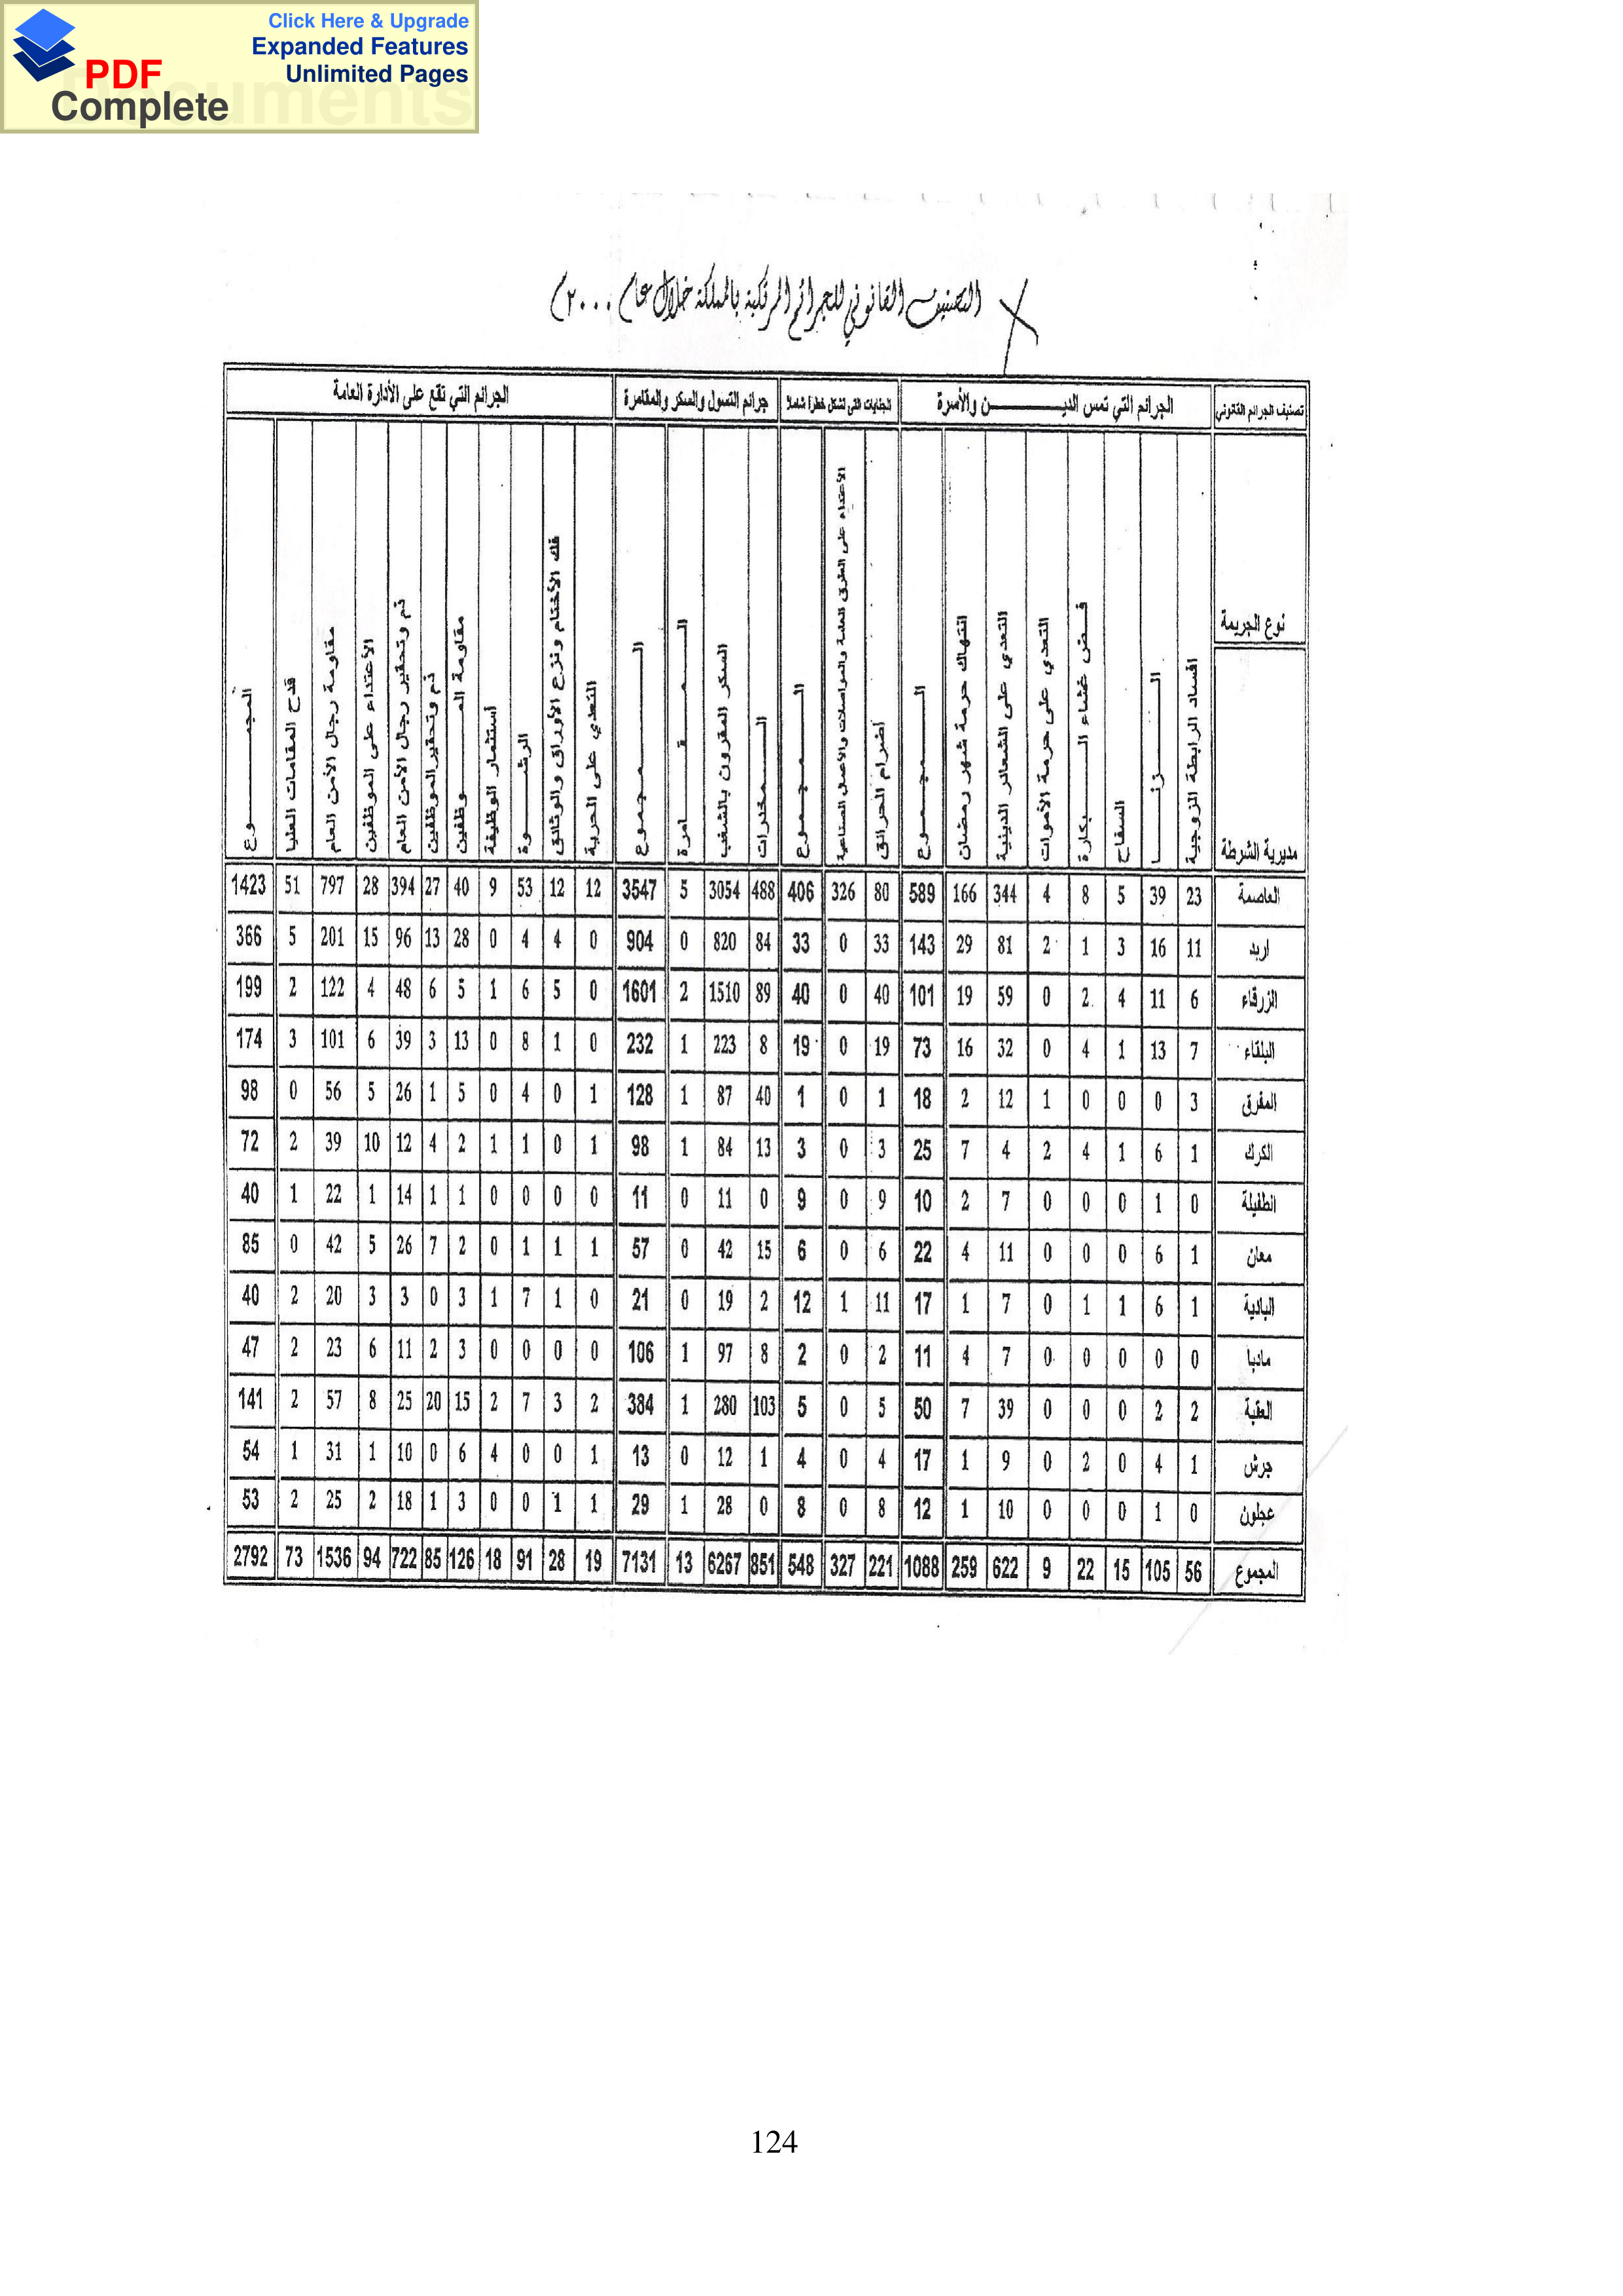 Click Here & Upgrade
Expanded Features
Unlimited Pages
PDF
Complete
Documents
التصنيف القانوني للجرائم المرتكبة بالمملكة خلال عام ٢٠٠٠م
تصنيف الجرائم القانوني الجرائم التي تمس الديـــن والأسرة الجنايات التي تشكل خطرا شاملا جرائم التسول والسكر والمقامرة الجرائم التي تقع على الأدارة العامة
نوع الجريمة
مديرية الشرطة افساد الرابطة الزوجية الزنـــا السفاح فـض غشاء البـكارة التعدي على حرمة الأموات التعدي على الشعائر الدينية انتهاك حرمة شهر رمضان المجمـوع اضرام الحرائق الأعتداء على الطرق العامة والمواصلات والأعمال الصناعية المجمـوع المخدرات السكر المقرون بالشغب المقـامرة المجموع التعدي على الحرية فك الأختام ونزع الأوراق والوثائق الرشـوة أستثمار الوظيفة مقاومة المـوظفين ذم وتحقير الموظفين ذم وتحقير رجال الأمن العام الأعتداء على الموظفين مقاومة رجال الأمن العام قدح المقامات العليا المجمـوع
العاصمة 23 39 5 8 4 344 166 589 80 326 406 488 3054 5 3547 12 12 53 9 40 27 394 28 797 51 1423
اربد 11 16 3 1 2 81 29 143 33 0 33 84 820 0 904 0 4 4 0 28 13 96 15 201 5 366
الزرقاء 6 11 4 2 0 59 19 101 40 0 40 89 1510 2 1601 0 5 6 1 5 6 48 4 122 2 199
البلقاء 7 13 1 4 0 32 16 73 19 0 19 8 223 1 232 0 1 8 0 13 3 39 6 101 3 174
المفرق 3 0 0 0 1 12 2 18 1 0 1 40 87 1 128 1 0 4 0 5 1 26 5 56 0 98
الكرك 1 6 1 4 2 4 7 25 3 0 3 13 84 1 98 1 0 1 1 2 4 12 10 39 2 72
الطفيلة 0 1 0 0 0 7 2 10 9 0 9 0 11 0 11 0 0 0 0 1 1 14 1 22 1 40
معان 1 6 0 0 0 11 4 22 6 0 6 15 42 0 57 1 1 1 0 2 7 26 5 42 0 85
البادية 1 6 1 1 0 7 1 17 11 1 12 2 19 0 21 0 1 7 1 3 0 3 3 20 2 40
مادبا 0 0 0 0 0 7 4 11 2 0 2 8 97 1 106 0 0 0 0 3 2 11 6 23 2 47
العقبة 2 2 0 0 0 39 7 50 5 0 5 103 280 1 384 2 3 7 2 15 20 25 8 57 2 141
جرش 1 4 0 2 0 9 1 17 4 0 4 1 12 0 13 1 0 0 4 6 0 10 1 31 1 54
عجلون 0 1 0 0 0 10 1 12 8 0 8 0 28 1 29 1 1 0 0 3 1 18 2 25 2 53
المجموع 56 105 15 22 9 622 259 1088 221 327 548 851 6267 13 7131 19 28 91 18 126 85 722 94 1536 73 2792
124